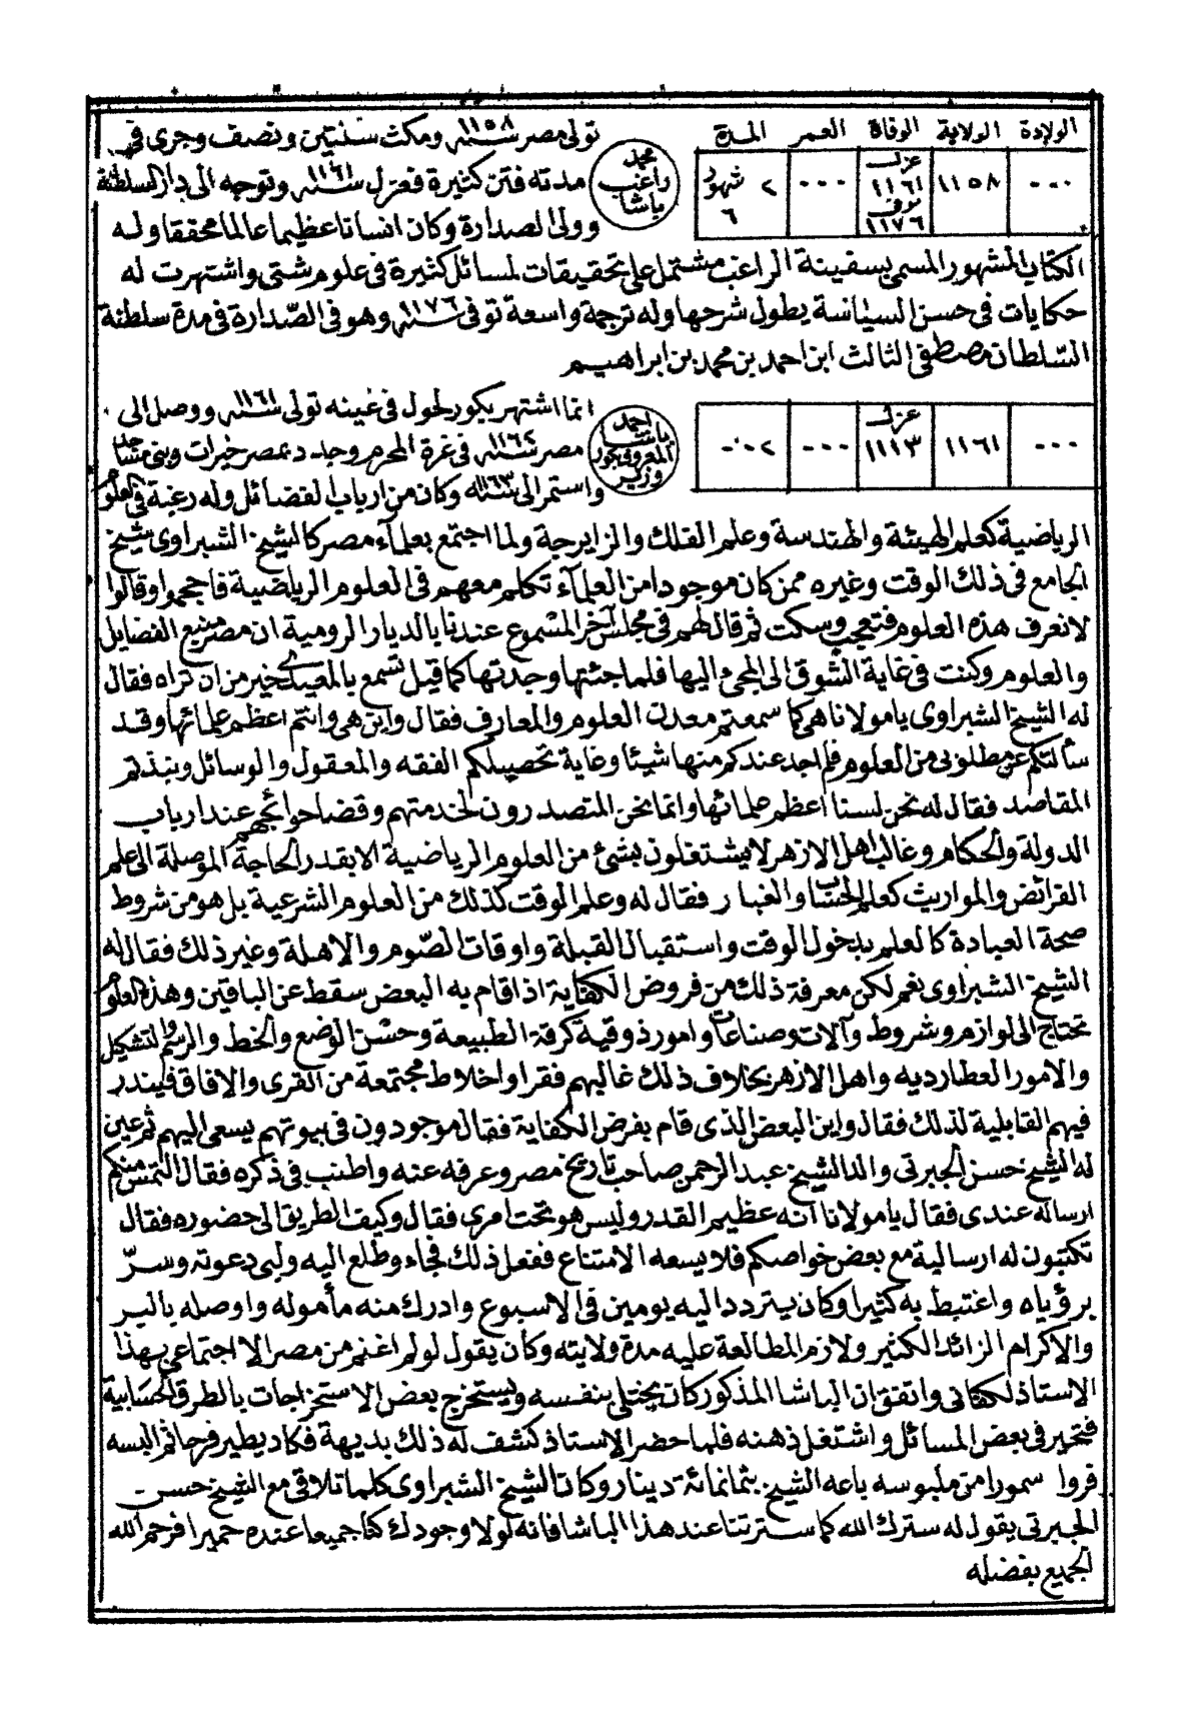 الولادة الولاية الوفاة العمر المدة
٠٠٠ ١١٥٨ عزل ١١٦١ توفى ١١٧٦ ٠٠٠ ٢ شهور ٦
محمد راغب باشا
تولى مصر سنة ١١٥٨ ومكث سنتين ونصف وجرى فى
مدته فتن كثيرة فعزل سنة ١١٦١ وتوجه الى دار السلطنة
وولى الصدارة وكان انسانا عظيما عالما محققا وله
الكتاب المشهور المسمى بسفينة الراغب مشتمل على تحقيقات لمسائل كثيرة فى علوم شتى واشتهرت له
حكايات فى حسن السياسة يطول شرحها وله ترجمة واسعة توفى سنة ١١٧٦ وهو فى الصدارة فى مدة سلطنة
السلطان مصطفى الثالث ابن احمد بن محمد بن ابراهيم
٠٠٠ ١١٦١ عزل ١١١٣ ٠٠٠ ٠٠٢
احمد باشا المعروف بكور وزير
انما اشتهر بكور لحول فى عينه تولى سنة ١١٦١ ووصل الى
مصر سنة ١١٦٢ فى غرة المحرم وجدد بمصر خيرات وبنى مساجد
واستمر الى سنة ١١٦٣ وكان من ارباب الفضائل وله رغبة فى العلوم
الرياضية كعلم الهيئة والهندسة وعلم الفلك والزايرجة ولما اجتمع بعلماء مصر كالشيخ الشبراوى شيخ
الجامع فى ذلك الوقت وغيره ممن كان موجودا من العلماء تكلم معهم فى العلوم الرياضية فاحجموا وقالوا
لا نعرف هذه العلوم فتعجب وسكت ثم قال لهم فى مجلس آخر المسموع عندنا بالديار الرومية ان مصر منبع الفضايل
والعلوم وكنت فى غاية الشوق الى المجئ اليها فلما جئتها وجدتها كما قيل تسمع بالمعيدى خير من ان تراه فقال
له الشيخ الشبراوى يا مولانا هى كما سمعتم معدن العلوم والمعارف فقال واين هى وانتم اعظم علمائها وقد
سألتكم عن مطلوبى من العلوم فلم اجد عندكم منها شيئا وغاية تحصيلكم الفقه والمعقول والوسائل ونبذتم
المقاصد فقال له نحن لسنا اعظم علمائها وانما نحن المتصدرون لخدمتهم وقضا حوائجهم عند ارباب
الدولة والحكام وغالب اهل الازهر لا يشتغلون بشئ من العلوم الرياضية الا بقدر الحاجة الموصلة الى علم
الفرائض والمواريث كعلم الحساب والغبار فقال له وعلم الوقت كذلك من العلوم الشرعية بل هو من شروط
صحة العبادة كالعلم بدخول الوقت واستقبال القبلة واوقات الصوم والاهلة وغير ذلك فقال له
الشيخ الشبراوى نعم لكن معرفة ذلك من فروض الكفاية اذا قام به البعض سقط عن الباقين وهذه العلوم
تحتاج الى لوازم وشروط وآلات وصناعات وامور ذوقية كرقة الطبيعة وحسن الوضع والخط والرسم والتشكيل
والامور العطارديه واهل الازهر بخلاف ذلك غالبهم فقرا واخلاط مجتمعة من القرى والافاق فيندر
فيهم القابلية لذلك فقال واين البعض الذى قام بفرض الكفاية فقال موجودون فى بيوتهم يسعى اليهم ثم عين
له الشيخ حسن الجبرتى والد الشيخ عبد الرحمن صاحب تاريخ مصر وعرفه عنه واطنب فى ذكره فقال التمس منكم
ارساله عندى فقال يا مولانا انه عظيم القدر وليس هو تحت امرى فقال وكيف الطريق الى حضوره فقال
تكتبون له ارسالية مع بعض خواصكم فلا يسعه الامتناع ففعل ذلك فجاء وطلع اليه ولبى دعوته وسرّ
برؤياه واغتبط به كثيرا وكان يتردد اليه يومين فى الاسبوع وادرك منه مأموله واوصله بالبر
والاكرام الزائد الكثير ولازم المطالعة عليه مدة ولايته وكان يقول لو لم اغنم من مصر الا اجتماعى بهذا
الاستاذ لكفانى واتفق ان الباشا المذكور كان يختلى بنفسه ويستخرج بعض الاستخراجات بالطرق الحسابية
فتحير فى بعض المسائل واشتغل ذهنه فلما حضر الاستاذ كشف له ذلك بديهة فكاد يطير فرحا ثم البسه
فروا سمورا من ملبوسه باعه الشيخ بثمانمائة دينار وكان الشيخ الشبراوى كلما تلاقى مع الشيخ حسن
الجبرتى يقول له سترك الله كما سترتنا عند هذا الباشا فانه لولا وجودك كنا جميعا عنده حميرا فرحم الله
الجميع بفضله